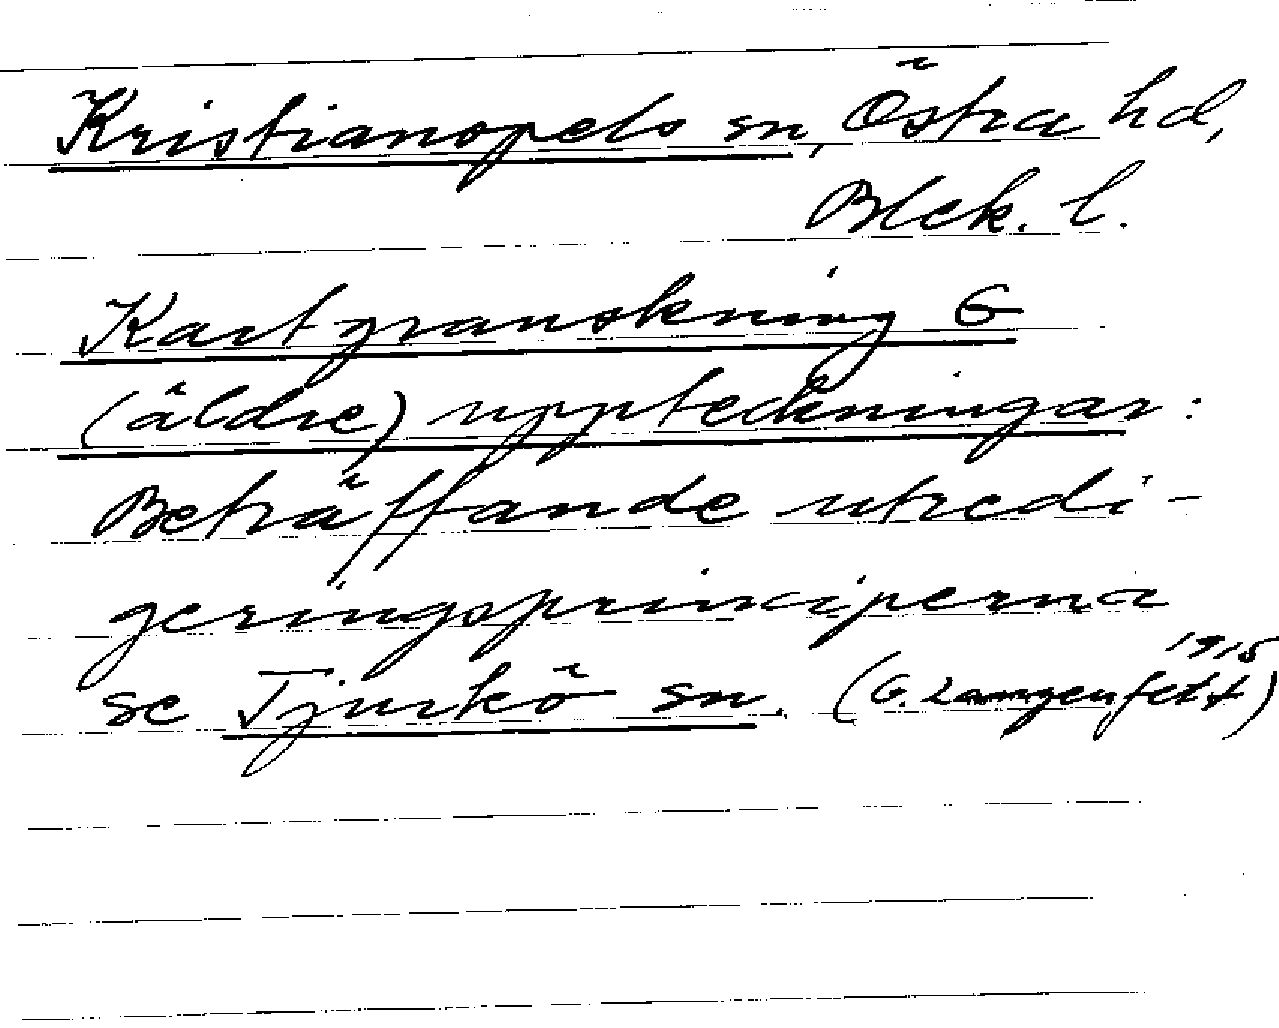 Kristianopels sn, Östra hd,
Blek. l.
Kartgranskning G
(äldre) uppteckningar:
Beträffande utredi-
geringsprinciperna
se Tjurkö sn. (G. Langenfelt 1915)